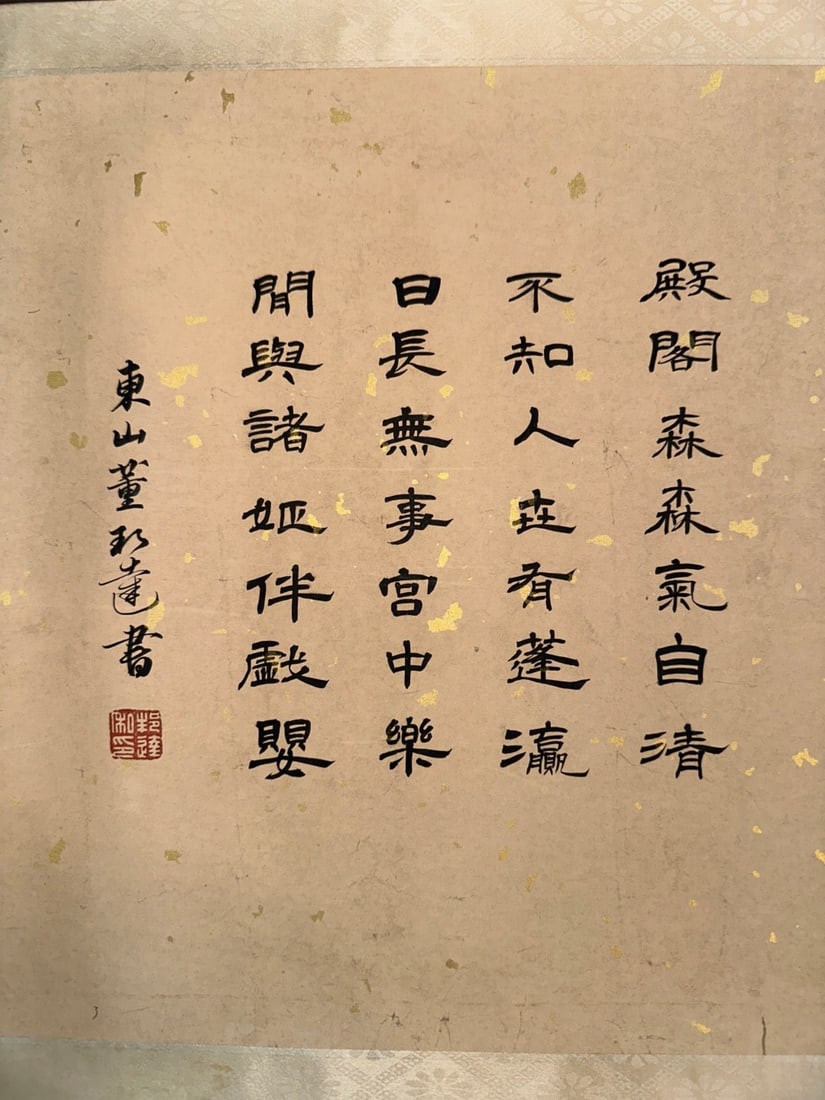 殿閣森森氣自清
不知人世有蓬瀛
日長無事宮中樂
閒與諸姬伴戲嬰
東山董邦達書
邦達私印